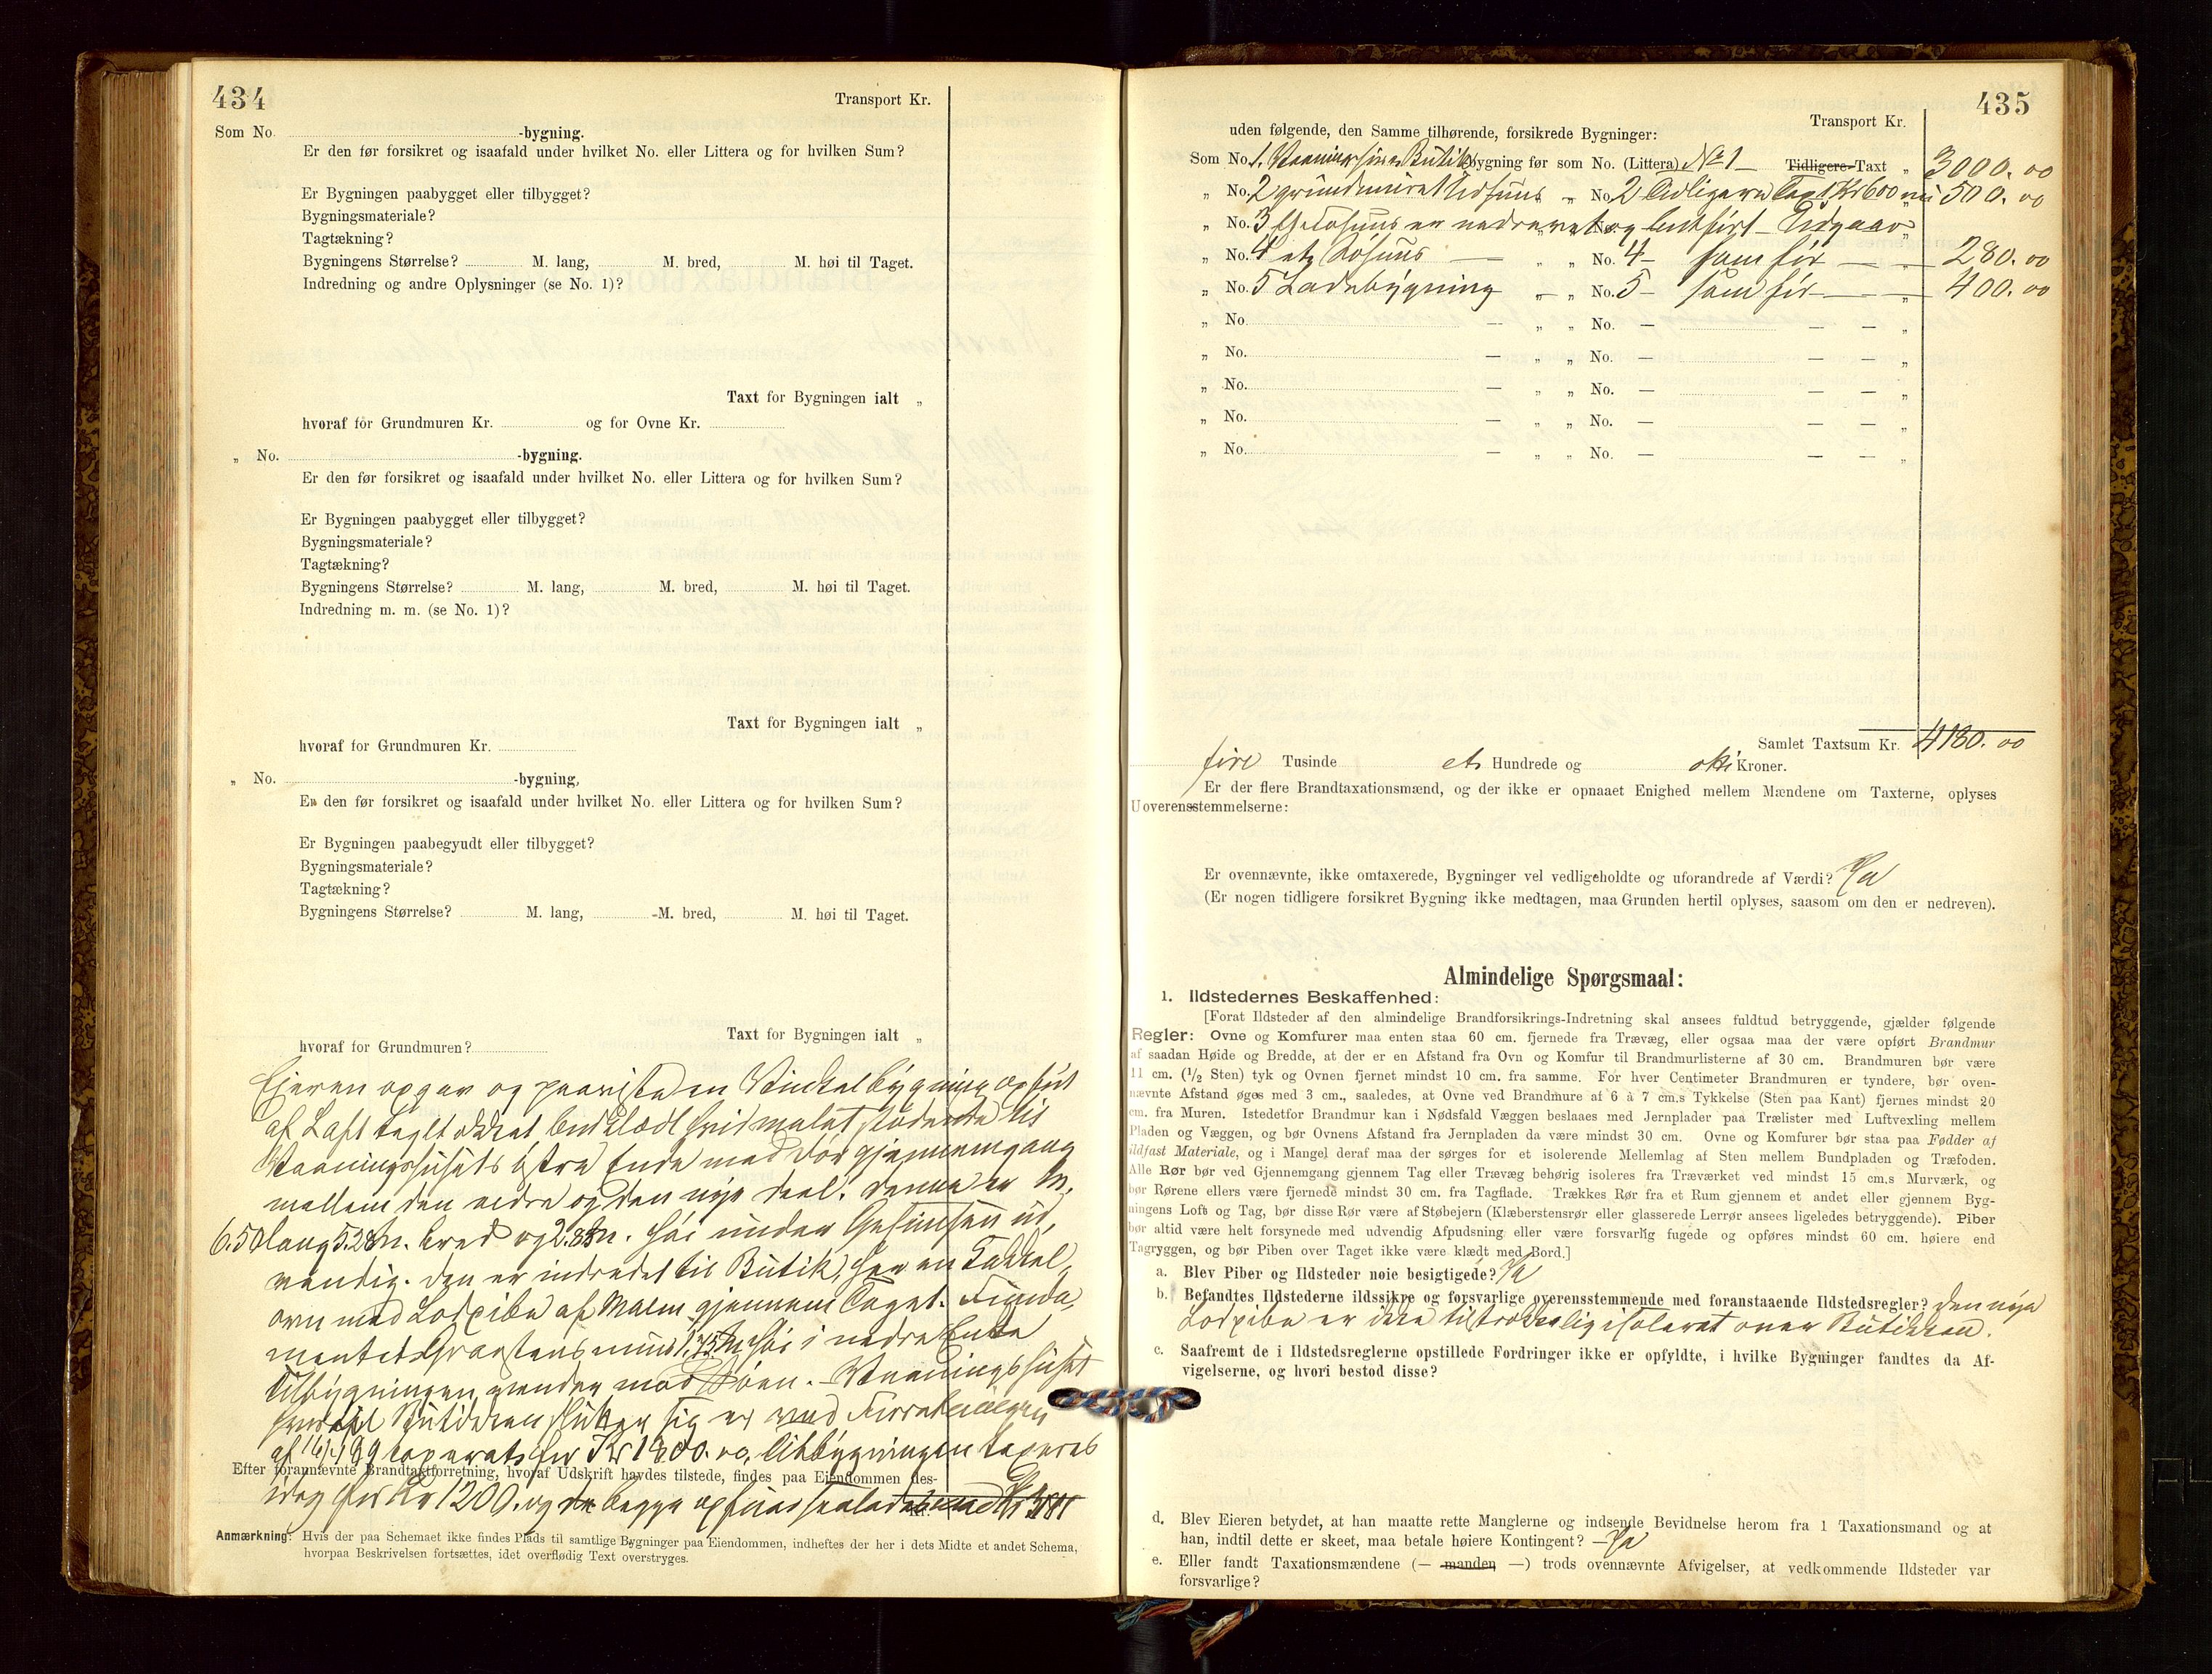 434
Transport Kr.
Som No. -bygning.
Er den før forsikret og isaafald under hvilket No. eller Littera og for hvilken Sum?
Er Bygningen paabygget eller tilbygget?
Bygningsmateriale?
Tagtækning?
Bygningens Størrelse? M. lang, M. bred, M. høi til Taget.
Indredning og andre Oplysninger (se No. 1)?
Taxt for Bygningen ialt „
hvoraf for Grundmuren Kr. og for Ovne Kr.
„ No. -bygning.
Er den før forsikret og isaafald under hvilket No. eller Littera og for hvilken Sum?
Er Bygningen paabygget eller tilbygget?
Bygningsmateriale?
Tagtækning?
Bygningens Størrelse? M. lang, M. bred, M. høi til Taget.
Indredning m. m. (se No. 1)?
Taxt for Bygningen ialt „
hvoraf for Grundmuren Kr.
„ No. -bygning,
Er den før forsikret og isaafald under hvilket No. eller Littera og for hvilken Sum?
Er Bygningen paabegyudt eller tilbygget?
Bygningsmateriale?
Tagtækning?
Bygningens Størrelse? M. lang, M. bred, M. høi til Taget.
Taxt for Bygningen ialt „
hvoraf for Grundmuren?
Eieren opgav og paaviste en Vinkelbygning opført
af Laft taglt bordklædt hvidmalet stødende til
Vaaningshusets østre Ende med Dør gjennemgang
mellem den ældre og den nye Deel. Denne er M.
6.50 lang 5.28 M. bred og 2.88 M. høi under Gesimsen ud,
vendig. Den er indredet til Butik, har en Kakkel,
ovn med Lodpibe af Malm gjennem Taget. Funda,
mentet Graastensmuur 1,75 M høi i nedre Ende
Tilbygningen vender mod Søen. Vaaningshuset
hvortil Butikken slutter sig er ved Forretningen
af 16/1 199 taxerets for Kr 1800.00, Tilbygningen taxeres
Efter forannævnte Brandtaktforretning, hvoraf Udskrift havdes tilstede, findes paa Eiendommen des-
idag for Kr 1200. og begge opføres
Anmærkning: Hvis der paa Schemaet ikke findes Plads til samtlige Bygninger paa Eiendommen, indheftes der her i dets Midte et andet Schema,
hvorpaa Beskrivelsen fortsættes, idet overflødig Text overstryges.
435
Transport Kr.
uden følgende, den Samme tilhørende, forsikrede Bygninger:
Som No. 1. Vaaningshus Butik bygning før som No. (Littera) No 1 Tidligere Taxt „ 3000.00
„ No. 2 grundmuret Ildhuus „ No. 2 Tidligere Taxt Kr 600 nu 500.00
„ No. 3 er nedrevet og bortført Udgaar
„ No. 4 et Løhuus — „ „ No. 4 — som før — „ 280.00
„ No. 5 Ladebygning — „ „ No. 5 — som før — „ 400.00
„ No. — „ „ No. — — — „
„ No. — „ „ No. — — — „
„ No. — „ „ No. — — — „
„ No. — „ „ No. — — — „
„ No. — „ „ No. — — — „
Samlet Taxtsum Kr. 4180.00
fire Tusinde et Hundrede og otti Kroner.
Er der flere Brandtaxationsmænd, og der ikke er opnaaet Enighed mellem Mændene om Taxterne, oplyses
Uoverensstemmelserne:
Er ovennævnte, ikke omtaxerede, Bygninger vel vedligeholdte og uforandrede af Værdi? Ja
(Er nogen tidligere forsikret Bygning ikke medtagen, maa Grunden hertil oplyses, saasom om den er nedreven).
Almindelige Spørgsmaal:
1. Ildstedernes Beskaffenhed:
[Forat Ildsteder af den almindelige Brandforsikrings-Indretning skal ansees fuldtud betryggende, gjælder følgende
Regler: Ovne og Komfurer maa enten staa 60 cm. fjernede fra Trævæg, eller ogsaa maa der være opført Brandmur
af saadan Høide og Bredde, at der er en Afstand fra Ovn og Komfur til Brandmurlisterne af 30 cm. Brandmuren bør være
11 cm. (1/2 Sten) tyk og Ovnen fjernet mindst 10 cm. fra samme. For hver Centimeter Brandmuren er tyndere, bør oven-
nævnte Afstand øges med 3 cm., saaledes, at Ovne ved Brandmure af 6 à 7 cm.s Tykkelse (Sten paa Kant) fjernes mindst 20
cm. fra Muren. Istedetfor Brandmur kan i Nødsfald Væggen beslaaes med Jernplader paa Trælister med Luftvexling mellem
Pladen og Væggen, og bør Ovnens Afstand fra Jernpladen da være mindst 30 cm. Ovne og Komfurer bør staa paa Fødder af
ildfast Materiale, og i Mangel deraf maa der sørges for et isolerende Mellemlag af Sten mellem Bundpladen og Træfoden.
Alle Rør bør ved Gjennemgang gjennem Tag eller Trævæg behørig isoleres fra Træverket ved mindst 15 cm.s Murværk, og
bør Rørene ellers være fjernede mindst 30 cm. fra Tagflade. Trækkes Rør fra et Rum gjennem et andet eller gjennem Byg-
ningens Loft og Tag, bør disse Rør være af Støbejern (Klæberstensrør eller glasserede Lerrør ansees ligeledes betryggende). Piber
bør altid være helt forsynede med udvendig Afpudsning eller være forsvarlig fugede og opføres mindst 60 cm. høiere end
Tagryggen, og bør Piben over Taget ikke være klædt med Bord.]
a. Blev Piber og Ildsteder nøie besigtigede? Ja
b. Befandtes Ildstederne ildssikre og forsvarlige overensstemmende med foranstaaende Ildstedsregler? Den nye
Lodpibe er ikke tilstrækkelig isoleret over Butikken.
c. Saafremt de i Ildstedsreglerne opstillede Fordringer ikke er opfyldte, i hvilke Bygninger fandtes da Af-
vigelserne, og hvori bestod disse?
d. Blev Eieren betydet, at han maatte rette Manglerne og indsende Bevidnelse herom fra 1 Taxationsmand og at
han, indtil dette er skeet, maa betale høiere Kontingent? — Ja
e. Eller fandt Taxationsmændene (— manden —) trods ovennævnte Afvigelser, at vedkommende Ildsteder var
forsvarlige?